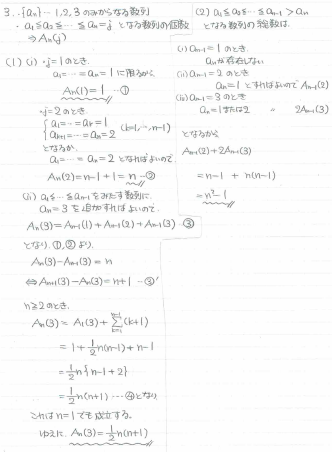 3. {an}…1,2,3のみからなる数列
・a1≦a2≦…≦an=jとなる数列の個数
⇒An(j)
(1)(i)・j=1のとき、
a1=…=an=1に限るから、
An(1)=1 …①
・j=2のとき、
{a1=…=ak=1
ak+1=…=an=2 (k=1,…,n-1)
となるか、
a1=…=an=2となればよいので、
An(2)=n-1+1=n…②
(ii) a1≦…≦an-1をみたす数列に、
an=3を追加すればよいので、
An(3)=An-1(1)+An-1(2)+An-1(3)…③
となり、①,②より、
An(3)-An-1(3)=n
⇔An+1(3)-An(3)=n+1…③'
n≧2のとき、
An(3)=A1(3)+Σ[k=1→n-1](k+1)
=1+1/2n(n-1)+n-1
=1/2n{n-1+2}
=1/2n(n+1)…④となり
これはn=1でも成立する。
ゆえに、An(3)=1/2n(n+1)
(2) a1≦a2≦…≦an-1>an
となる数列の総数は、
(i) an-1=1のとき、
anが存在しない
(ii) an-1=2のとき
an=1とすればよいのでAn-1(2)
(iii) an-1=3のとき
an=1または2 〃 2An-1(3)
となるから
An-1(2)+2An-1(3)
=n-1+n(n-1)
=n²-1